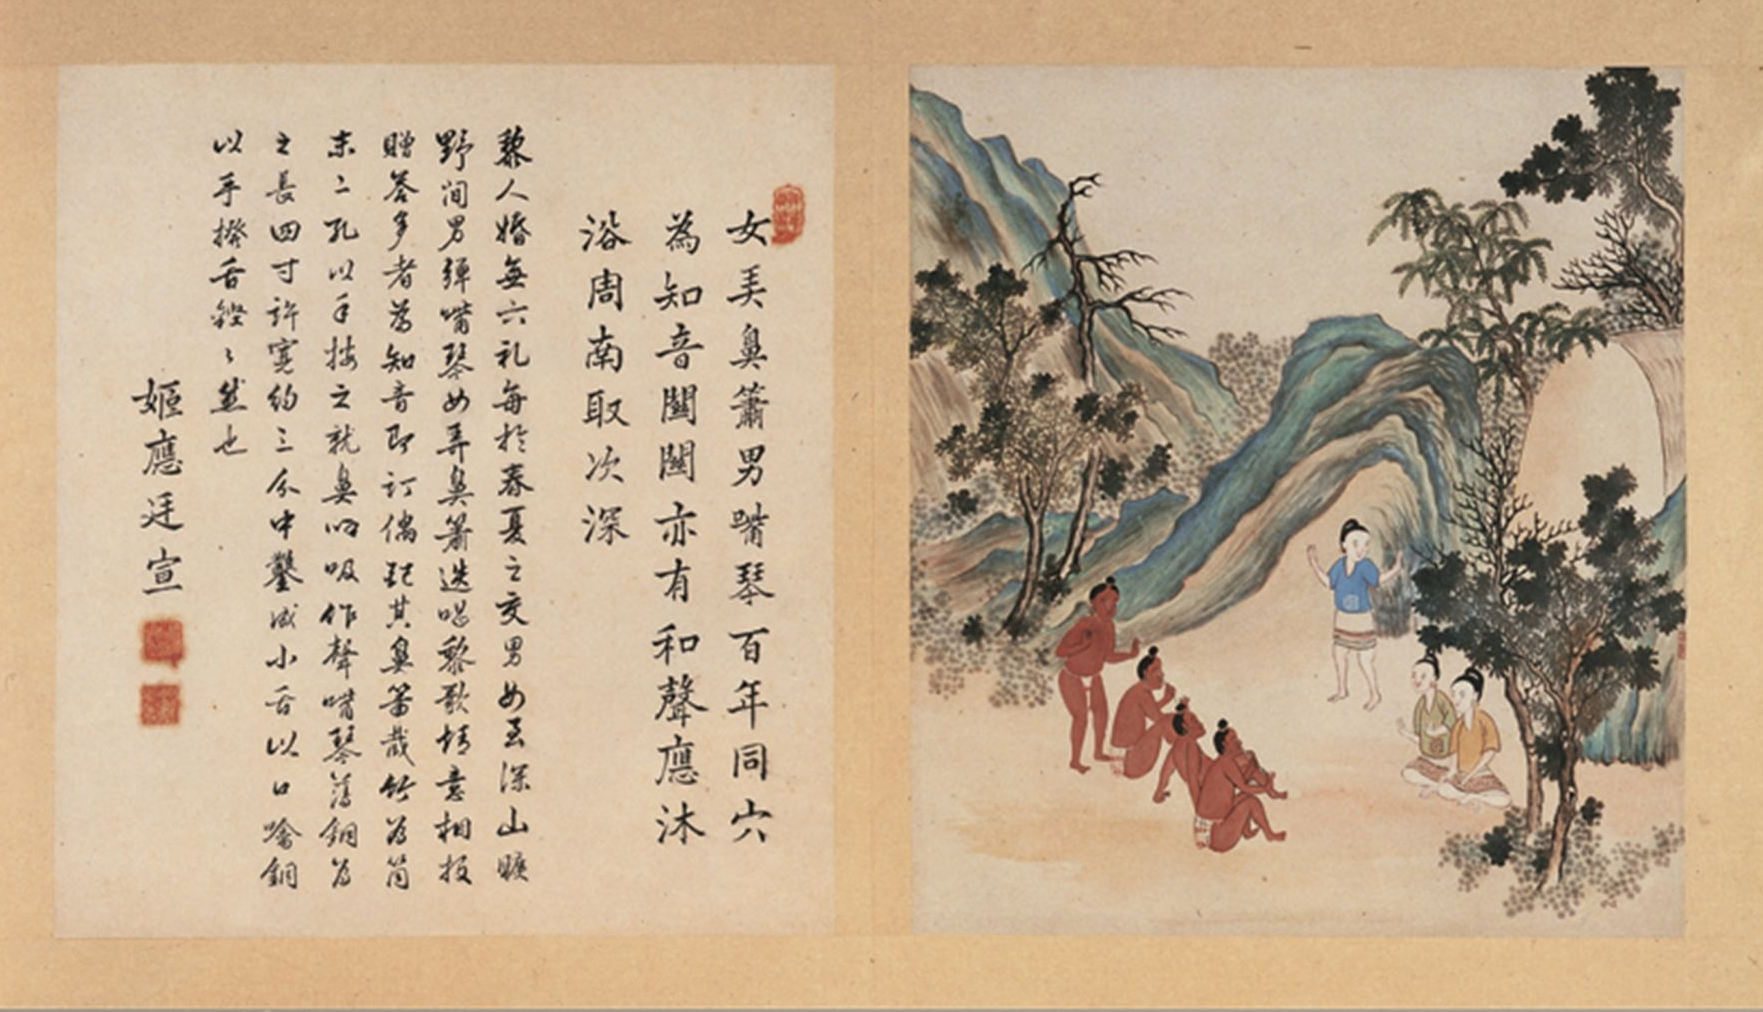 女美鼻簫男嘴琴百年同穴
為知音關關亦有和聲應沐
浴周南取次深
黎人婚無六礼每於春夏之交男女至深山曠
野间男彈嘴琴女弄鼻簫迭唱黎歌情意相投
贈答多者為知音即訂偶玩其鼻簫截竹为筒
末二孔以手按之就鼻吻吸作聲嘴琴薄銅为
之長四寸許寬約三分中鑿成小舌以口噏銅
以手撥舌鏗々然也
姬應廷宣